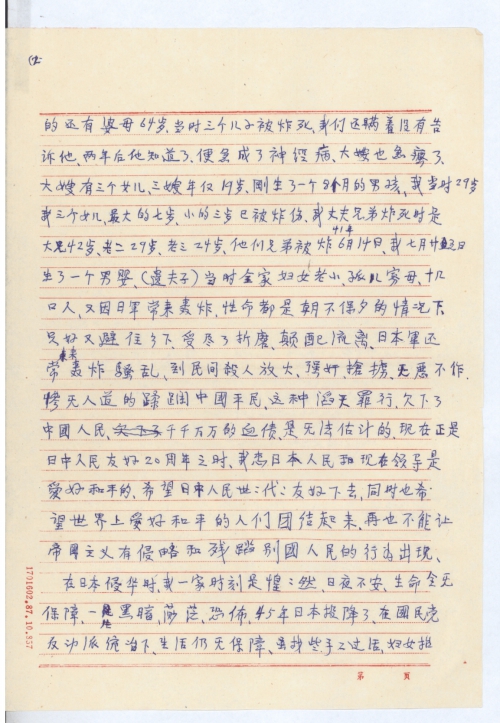 (2
的还有婆母64岁,当时三个儿子被炸死,我们还瞒着没有告
诉他,两年后他知道了,便急成了神经病,大嫂也急瘋了,
大嫂有三个女儿,三嫂年仅19岁,刚生了一个8个月的男孩,我当时29岁
我三个女儿,最大的七岁,小的三岁已被炸伤,我丈夫兄弟炸死时是
41年
大兄42岁,老二29岁,老三24岁,他们兄弟被炸6月14日,我七月十日
生了一个男婴,(遺夫子)当时全家妇女老小,孤儿寡母,十几
口人,又因日軍常来轰炸,性命都是朝不保夕的情况下,
只好又避住乡下,受尽了折磨,颠配流离,日本軍还
常来轰炸騷乱,到民间殺人放火,强奸,搶擄,无悪不作,
惨无人道的蹂躏中國平民,这种滔天罪行,欠下了
中國人民,千千万万的血债,是无法估计的,现在正是
日中人民友好20周年之时,我想日本人民和现在领导是
爱好和平的,希望日中人民世二代二友好下去,同时也希
望世界上爱好和平的人们团结起来,再也不能让
帝国主义有侵略和残踏别國人民的行为出现、
在日本侵华时,我一家时刻是惶二然,日夜不安,生命全无
保障,一片黑暗,恐佈,45年日本投降了,在國民党
反动派统治下,生活仍无保障,虽找些手工过活,妇女
1701602.87.10.857
第 页